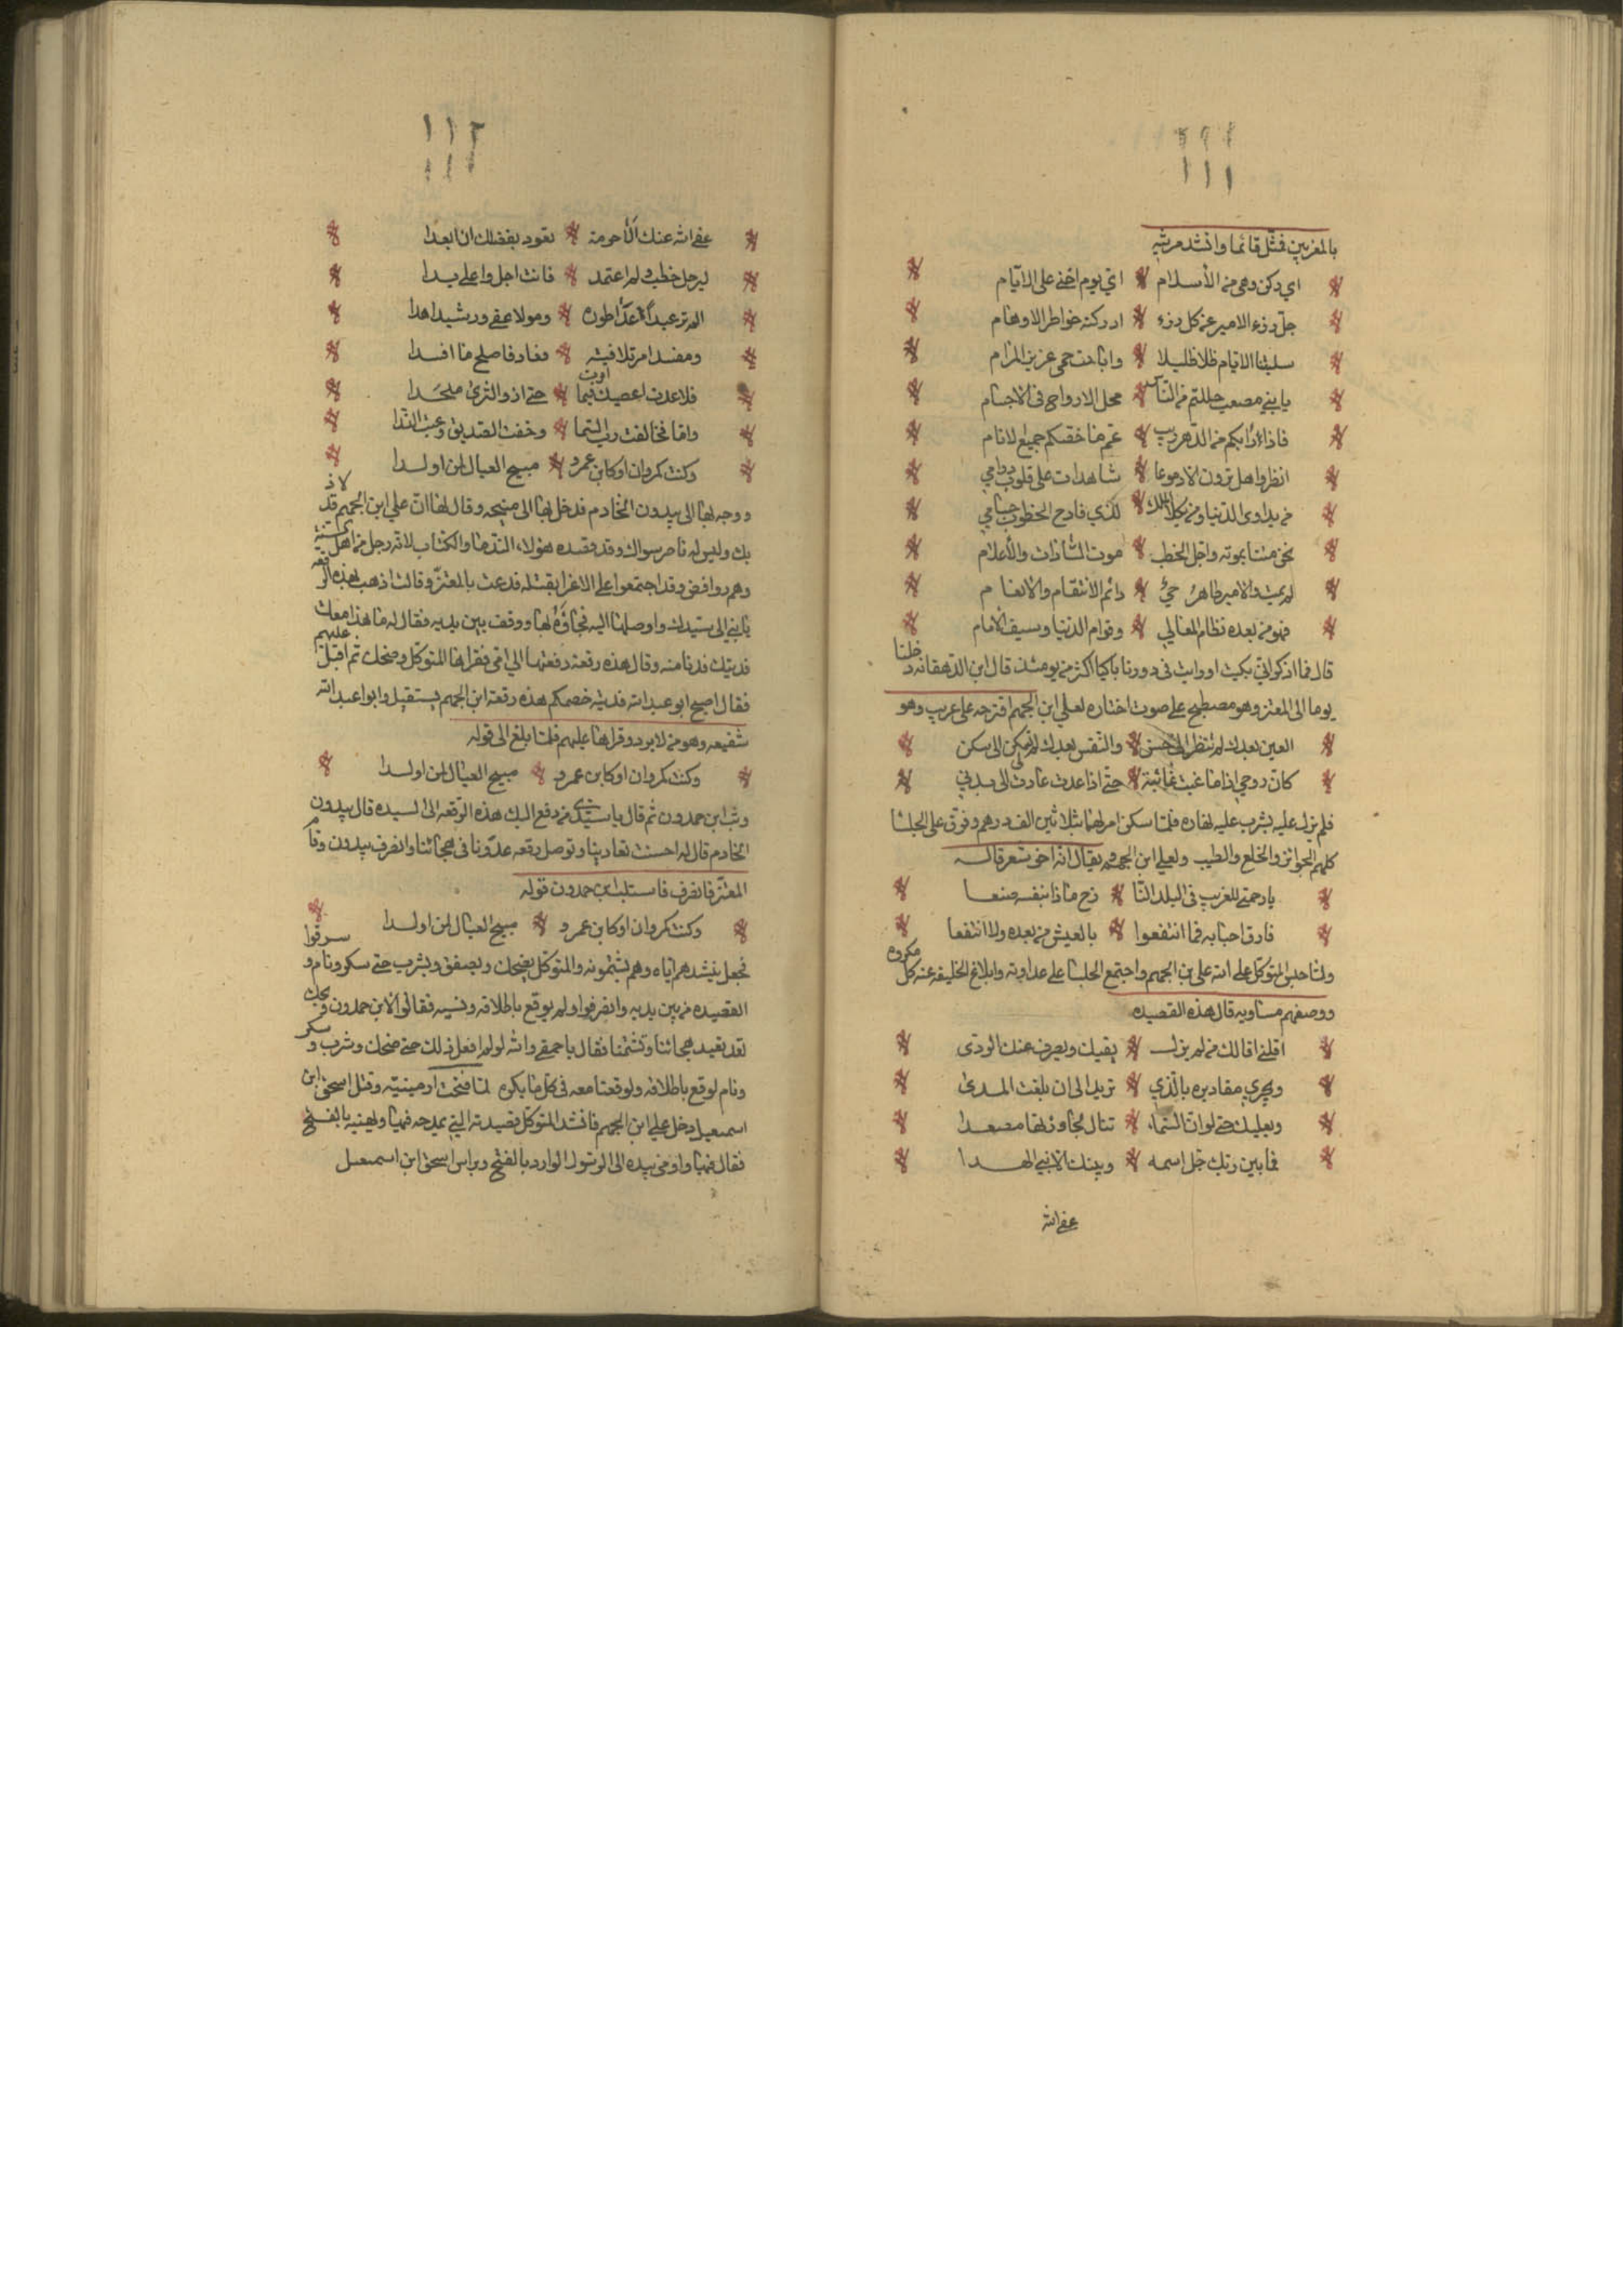 ١١١
بالمغربين فمثّل قائما وانشد مرثيه
اي ركن وهي من الأسلام اي يوم اخنى على الايّام
جلّ رزء الامير عن كل رزء ادركته خواطر الاوهام
سلبتنا الايام ظلا ظليلا واباحت حمى عزيز المرام
يا بني مصعب حللتم من الناس محل الارواح في الاجسام
فاذا رابكم من الدهر ريب عمّ ما خصّكم جميع الانام
انظروا هل ترون الا دموعا شاهدات على قلوب دوامي
من يداوي الدنيا ومن يكلا الملك لدى فادح الخطوب
نحن متنا بموته واجل الخطب موت السادات والأعلام
لم يمت والامير طاهر حيّ دائم الانتقام والانعام
فهو من بعده نظام المعالي وقوام الدنيا وسيف الامام
قال فما اذكر اني بكيت او رايت في دورنا باكيا اكثر من يومئذ قال ابن الدهقانه دخلنا
يوما الى المعتز وهو مصطبح على صوت اختاره لعلي ابن الجهم اقترحه على عريب وهو
العين بعدك لم تنظر الى حسن والنفس بعدك لم تسكن الى سكن
كان روحي اذا ما غبت غائبة حتّى اذا عدت عادت الى بدني
فلم يزل عليه يشرب عليه نهاره فلمّا سكن امر لها بثلاثين الف درهم وفوّق على الجلسا
كلهم الجوائز والخلع والطيب ولعلي ابن الجهم يقال انه اخر شعر قاله
يا رحمتي للغريب في البلد النا زح ماذا بنفسه صنعا
فارق احبابه فما انتفعوا بالعيش من بعده ولا انتفعا
ولما حبس المتوكل على الله علي بن الجهم واجتمع الجلسا على عداوته وابلاغ الخليفه عنه كل مكروه
ووصفهم مساويه قال هذه القصيده
اقلني اقالك من لم يزل يقيك ويصرف عنك الردى
ويجري مقاديره بالذي تريد الى ان بلغت المدى
ويعليك حتى لو ان السماء تنال لجاوزتها مصعدا
فما بين ربك جل اسمه وبينك الا نبي الهدا
عفى الله
١١٢
عفى الله عنك ألا حرمة تعود بفضلك ان ابعدا
لين جل خطب ولم اعتمد فانت اجل واعلى يدا
الم تر عبدا عدا طوره ومولا عفى ورشيدا هدا
ومفسد امر تلافيته فعاد فاصلح ما افسدا
فلا عدت اعصيك فيما امرت حتى ازور الثرى ملحدا
والا فخالفت رب السما وخفت الصديق وعبت الندا
وكنت كمروان او كابن عمرو مبيح العيال لمن اولدا
ووجه بها الى بيدون الخادم فدخل بها الى منيحه وقال لها ان علي ابن الجهم قد لاذ
بك وليس له ناصر سواك وقد قصده هولاء الندما والكتاب لانه رجل من اهل السنة
وهم روافض وقد اجتمعوا على الاغرا بقتله فدعت بالمعتزّ وقالت اذهب بهذه الرقعه
يا بني الى سيدك واوصلها اليه فجا بها ووقف بين يديه فقال له ما هذا معك
فديتك فدنا منه وقال هذه رقعة دفعتها الي امي فقراها المتوكل وضحك ثم اقبل عليهم
فقال اصبح ابو عبد الله فديته خصمكم هذه رقعة ابن الجهم يستقيل وابو عبد الله
شفيعه وهو من لا يرد وقراها عليهم فلما بلغ الى قوله
وكنت كمروان او كابن عمرو مبيح العيال لمن اولدا
وثب ابن حمدون ثم قال يا سيّدي من دفع اليك هذه الرقعه الى السيده قال بيدون
الخادم قال له احسنت تعادينا وتوصل رقعه عدونا في هجائنا وانصرف بيدون وقام
المعتزّ فانصرف فاستلب ابن حمدون قوله
وكنت كمروان او كابن عمرو مبيح العيال لمن اولدا
فجعل ينشدهم اياه وهم يشتمونه والمتوكّل يضحك ويصفق ويشرب حتى سكر ونام وسرقوا
القصيده من بين يديه وانصرفوا ولم يوقع باطلاقه ونسيه فقالوا لابن حمدون ويحك
لقد تعيد هجائنا وتشتمنا فقال يا حمقى والله لو لم افعل ذلك حتى ضحك وشرب وسكر
ونام لوقع باطلاقه ولوقعنا معه في كل ما يكره لما فتحت ارمينيّه وقتل اسحق ابن
اسمعيل دخل علي ابن الجهم فانشد المتوكل قصيدته التي يمدحه فيها ويهنيه بالفتح
فقال فيها واومى بيده الى الرسول الوارد بالفتح وبراس اسحق ابن اسمعيل